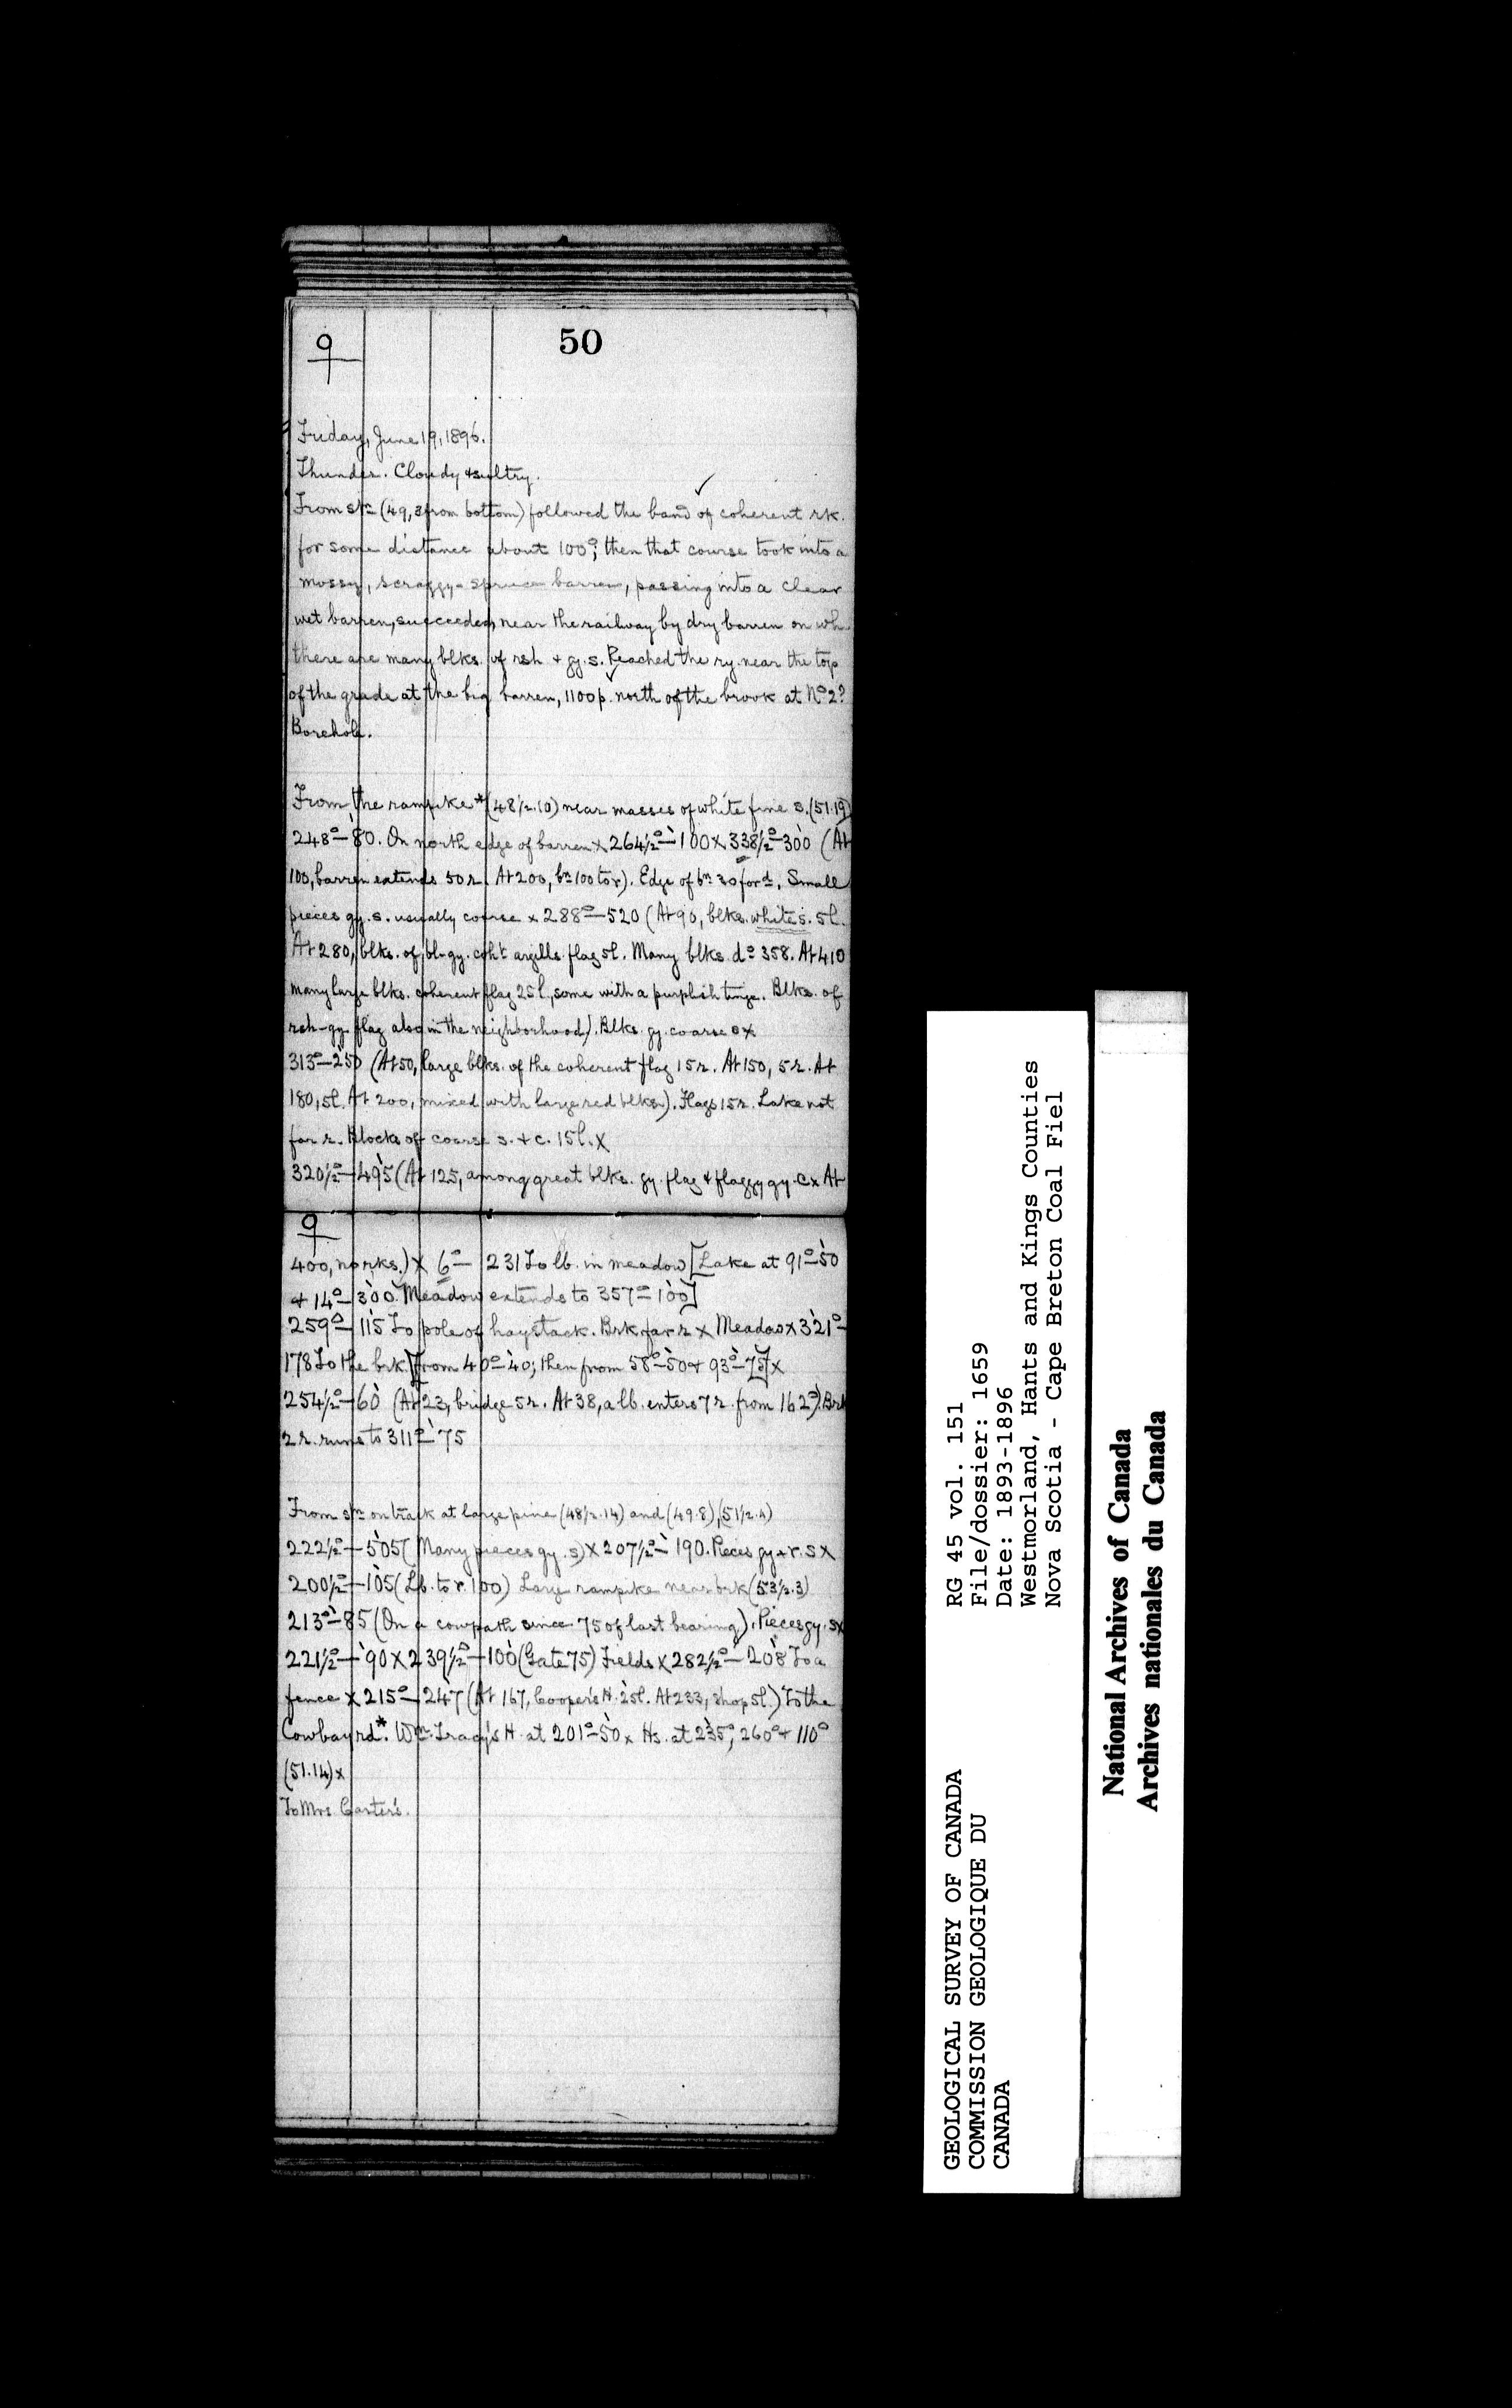 50
9
Friday, June 19, 1896.
Thunder. Cloudy & sultry.
From stn (49, 3 from bottom) followed the band of coherent rk.
for some distance about 100°; then that course took into a
mossy, scraggy-spruce barren, passing into a clear
wet barren, succeeded, near the railway by dry barren on wh.
there are many blks. of rsh & gy. s. Reached the ry. near the top
of the grade at the big barren, 1100 p. north of the brook at No 2?
Borehole.
From the rampike* (48½.10) near masses of white fine s. (51.19)
248°—80. On north edge of barren x 264½°—100 x 338½°—300 (At
100, barren extends 50 r. At 200, bn 100 to r). Edge of bn 30 for d. Small
pieces gy. s. usually coarse x 288°—520 (At 90, blks. white s. 5 l.
At 280, blks. of bl-gy. coht argills. flag 5l. Many blks. do 358. At 410
many large blks. coherent flag 25 l., some with a purplish tinge. Blks. of
rsh-gy. flag also in the neighborhood). Blks. gy. coarse s x
313°—250 (At 50, large blks. of the coherent flag 15 r. At 150, 5 r. At
180, 5l. At 200, mixed with large red blks.). Flags 15 r. Lake not
far r. Blocks of coarse s. & c. 15 l. x
320½°—495 (At 125, among great blks. gy. flag & flaggy gy. c x At
9
400, no rks.) x 6°—231 To lb. in meadow [Lake at 91°—50
& 14°—300. Meadow extends to 357°—100]
259°—115 To pole of haystack. Brk far r x Meadow x 321°—
178 To the brk [from 40°—40; then from 58°—50 & 93°—75] x
254½°—60 (At 23, bridge 5 r. At 38, a lb. enters 7 r. from 162°). Brk
2 r. runs to 311°—75
From stn on track at large pine (48½.14) and (49.8), (51½.4)
222½°—505 (Many pieces gy. s) x 207½°—190. Pieces gy & r. s x
200½°—105 (Lb. to r. 100) Large rampike near brk (53½.3)
213°—85 (On a cowpath since 75 of last bearing). Pieces gy. s x
221½°—90 x 239½°—100 (Gate 75) Fields x 282½°—208 To a
fence x 215°—247 (At 167, Cooper's H. 25l. At 233, shop 5l.) To the
Cowbay rd*. Wm. Tracy's H. at 201°—50 x Hs. at 235°, 260° & 110°
(51.14) x
To Mrs Carter's.
GEOLOGICAL SURVEY OF CANADA
COMMISSION GEOLOGIQUE DU
CANADA
RG 45 vol. 151
File/dossier: 1659
Date: 1893-1896
Westmorland, Hants and Kings Counties
Nova Scotia - Cape Breton Coal Fiel
National Archives of Canada
Archives nationales du Canada